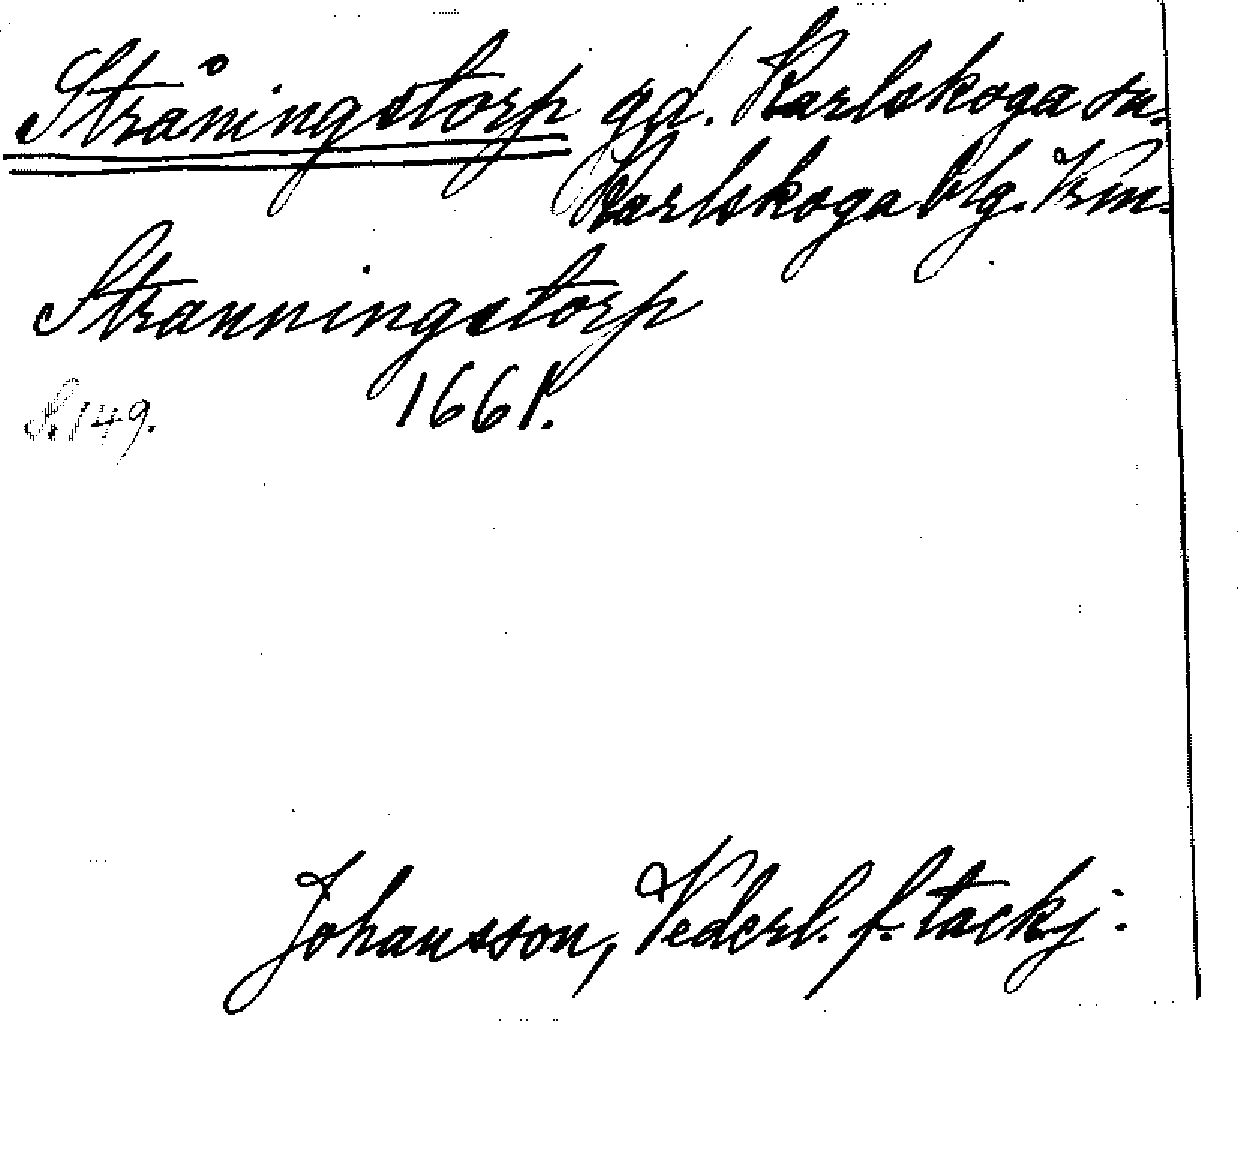 Stråningstorp gd. Karlskoga sn.
Karlskoga blg. Vrm.
Stranningstorp
1661.
S. 149.
Johansson, Vederl. f. tackj.